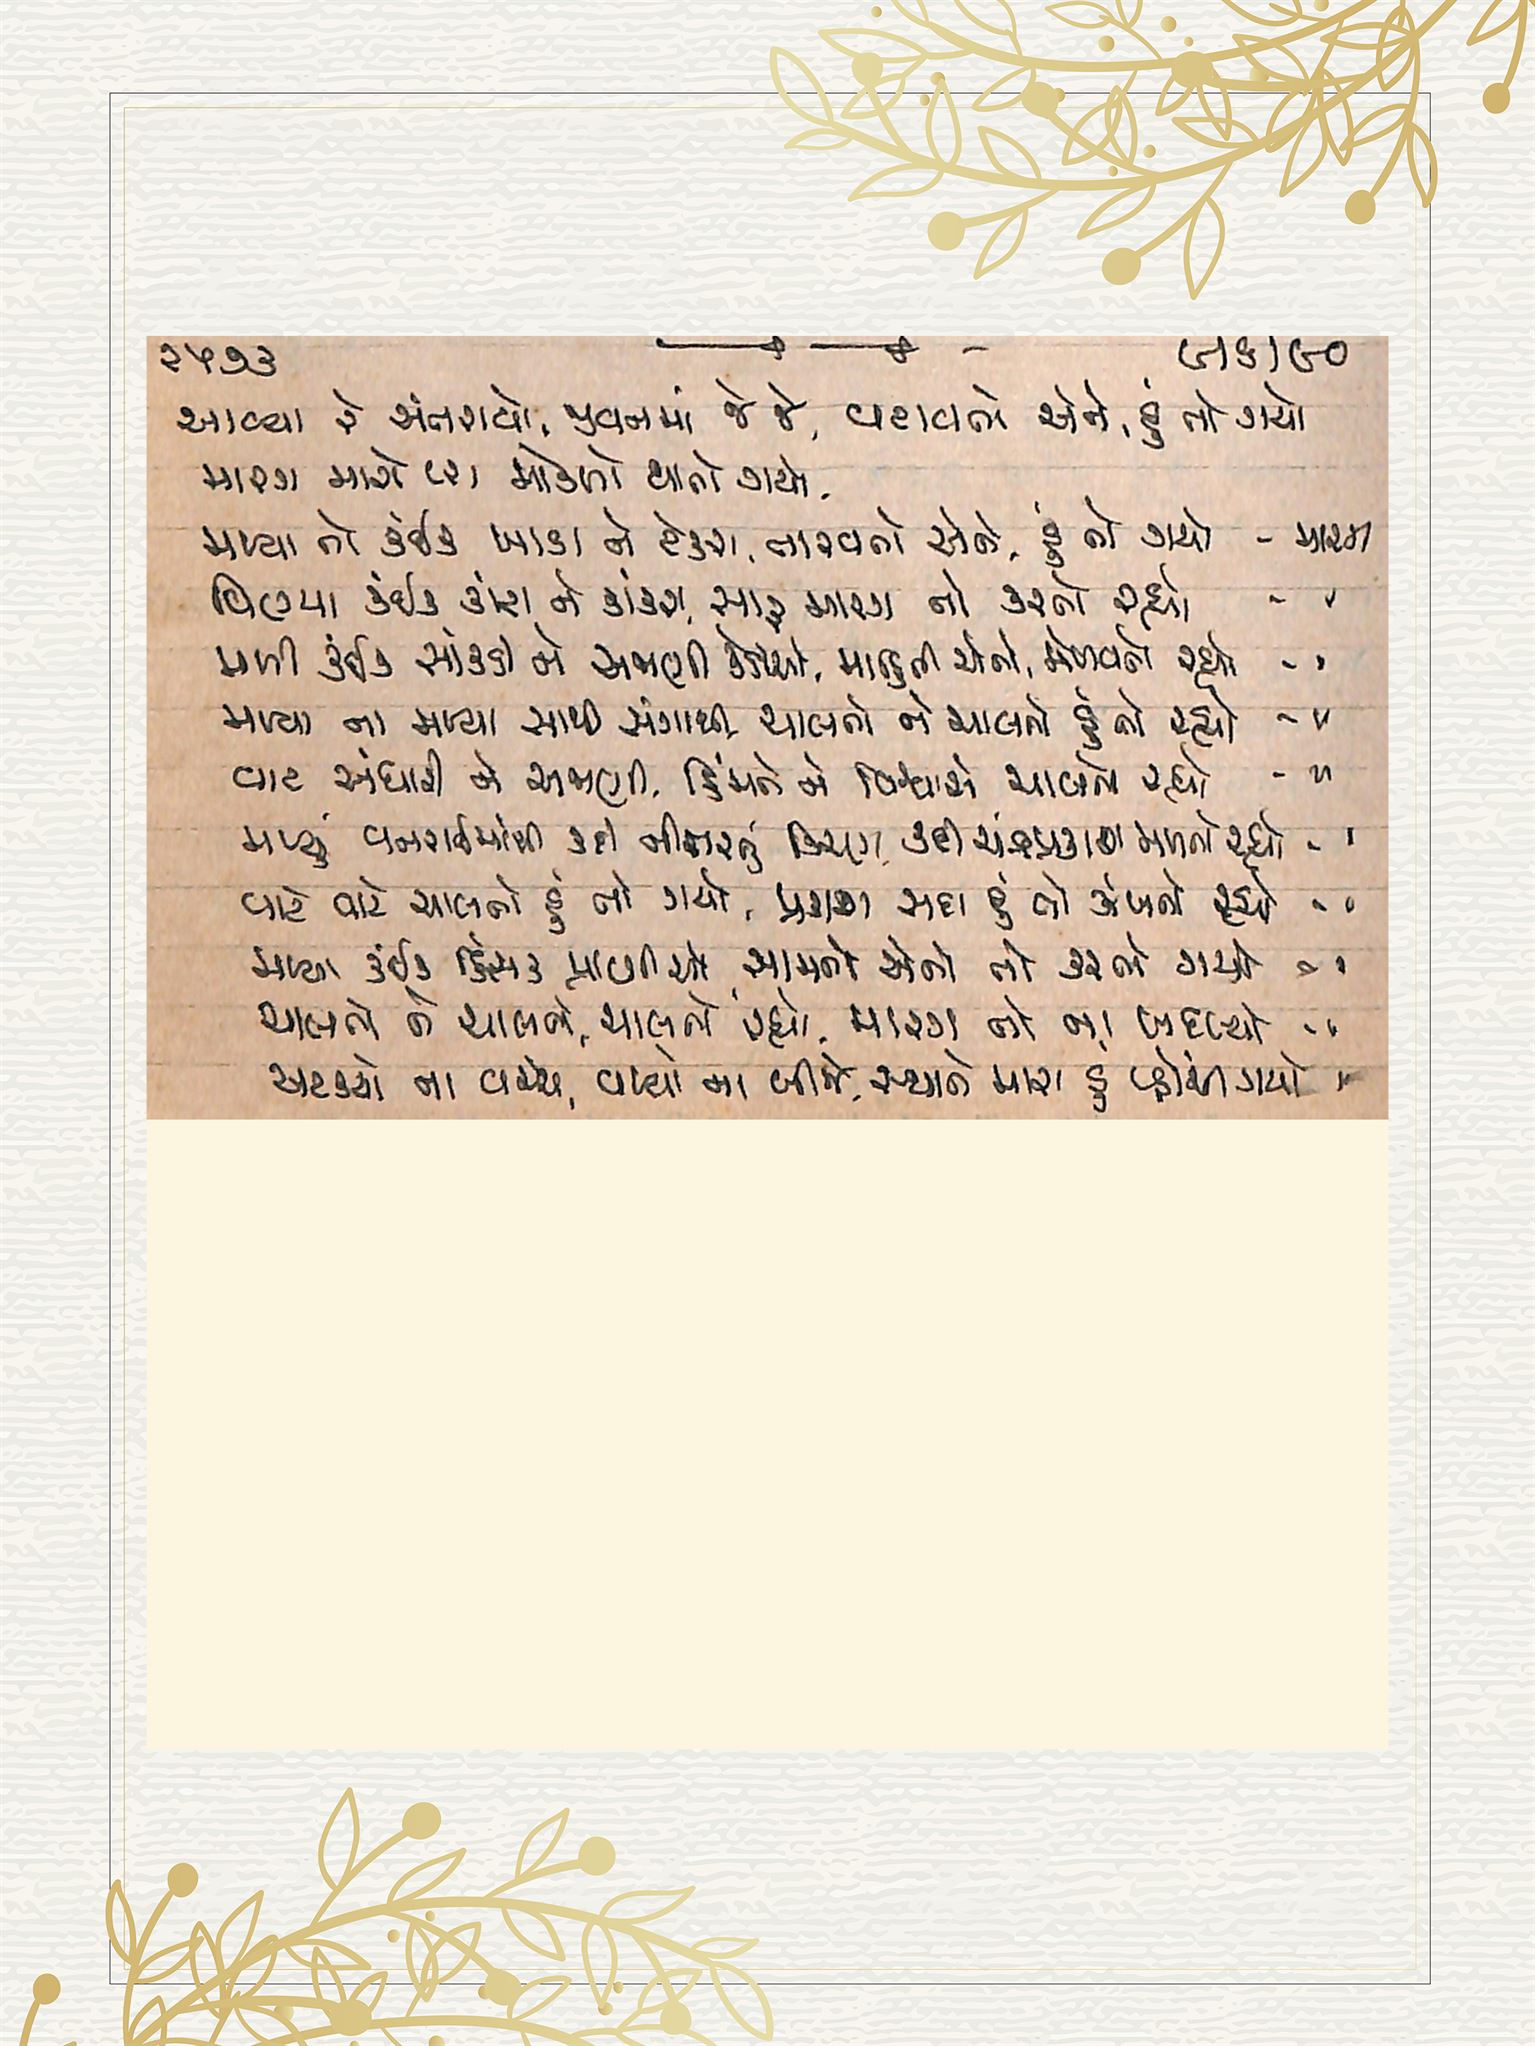 ૨૫૭૩ ૯/૬/૯૦
આવ્યા રે અંતરાયો, જીવનમાં જે જે, વટાવતો એને, હું તો ગયો
મારગ મારો મોકળો થાતો ગયો.
મળ્યા તો કંઈક ખાડા ને ટેકરા, તારવતો એને, હું તો ગયો - મારગ
વિણ્યા કંઈક કાંટા ને કાંકરા, સાફ મારગ તો કરતો રહ્યો - "
મળી કંઈક સાંકડી ને અજાણી કેડીઓ, માહિતી એની, મેળવતો રહ્યો - "
મળ્યા ના મળ્યા સાથી સંગાથી, ચાલતો ને ચાલતો હું તો રહ્યો - "
વાટ અંધારી ને અજાણી, હિંમતે ને વિશ્વાસે ચાલતો રહ્યો - "
મળ્યું વનરાઈમાંથી કદી નીતરતું કિરણ, કદી ચંદ્રપ્રકાશ મળતો રહ્યો - "
વાટે વાટે ચાલતો હું તો ગયો, પ્રકાશ સદા હું તો ઝંખતો રહ્યો - "
મળ્યા કંઈક હિંસક પ્રાણીઓ, સામનો એનો તો કરતો ગયો - "
ચાલતો ને ચાલતો, ચાલતો રહ્યો, મારગ તો ના બદલ્યો - "
અટક્યો ના વચ્ચે, વળ્યો ના બીજે, સ્થાને મારા હું પ્હોંચી ગયો "